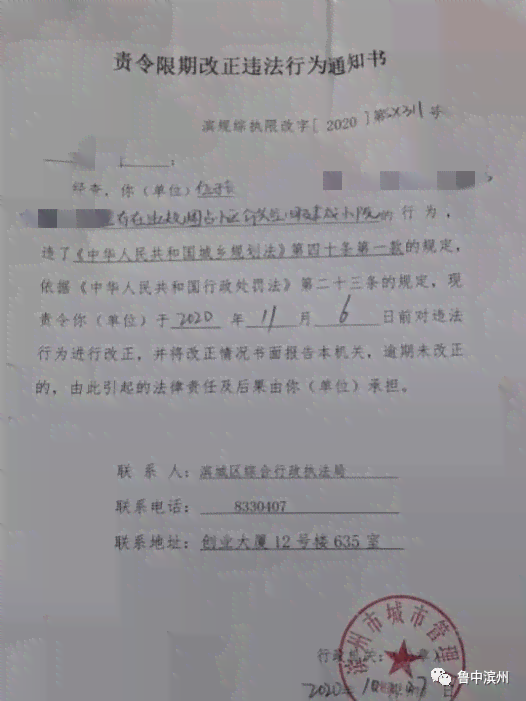 责令限期改正违法行为通知书
滨规综执限改字[2020]第SX311号
:
经查，你（单位）
的行为，
违了《中华人民共和国城乡规划法》第四十条第一款的规定，
依据《中华人民共和国行政处罚法》第二十三条的规定，现
责令你（单位）于2020年11月6日前对违法
行为进行改正，并将改正情况书面报告本机关，逾期未改正
的，由此引起的法律责任及后果由你（单位）承担。
联系人：滨城区综合行政执法局
联系电话：8330407
联系地址：创业大厦12号楼635室
滨州市城市管理
行政机关：章）
2020年10月27日
鲁中滨州